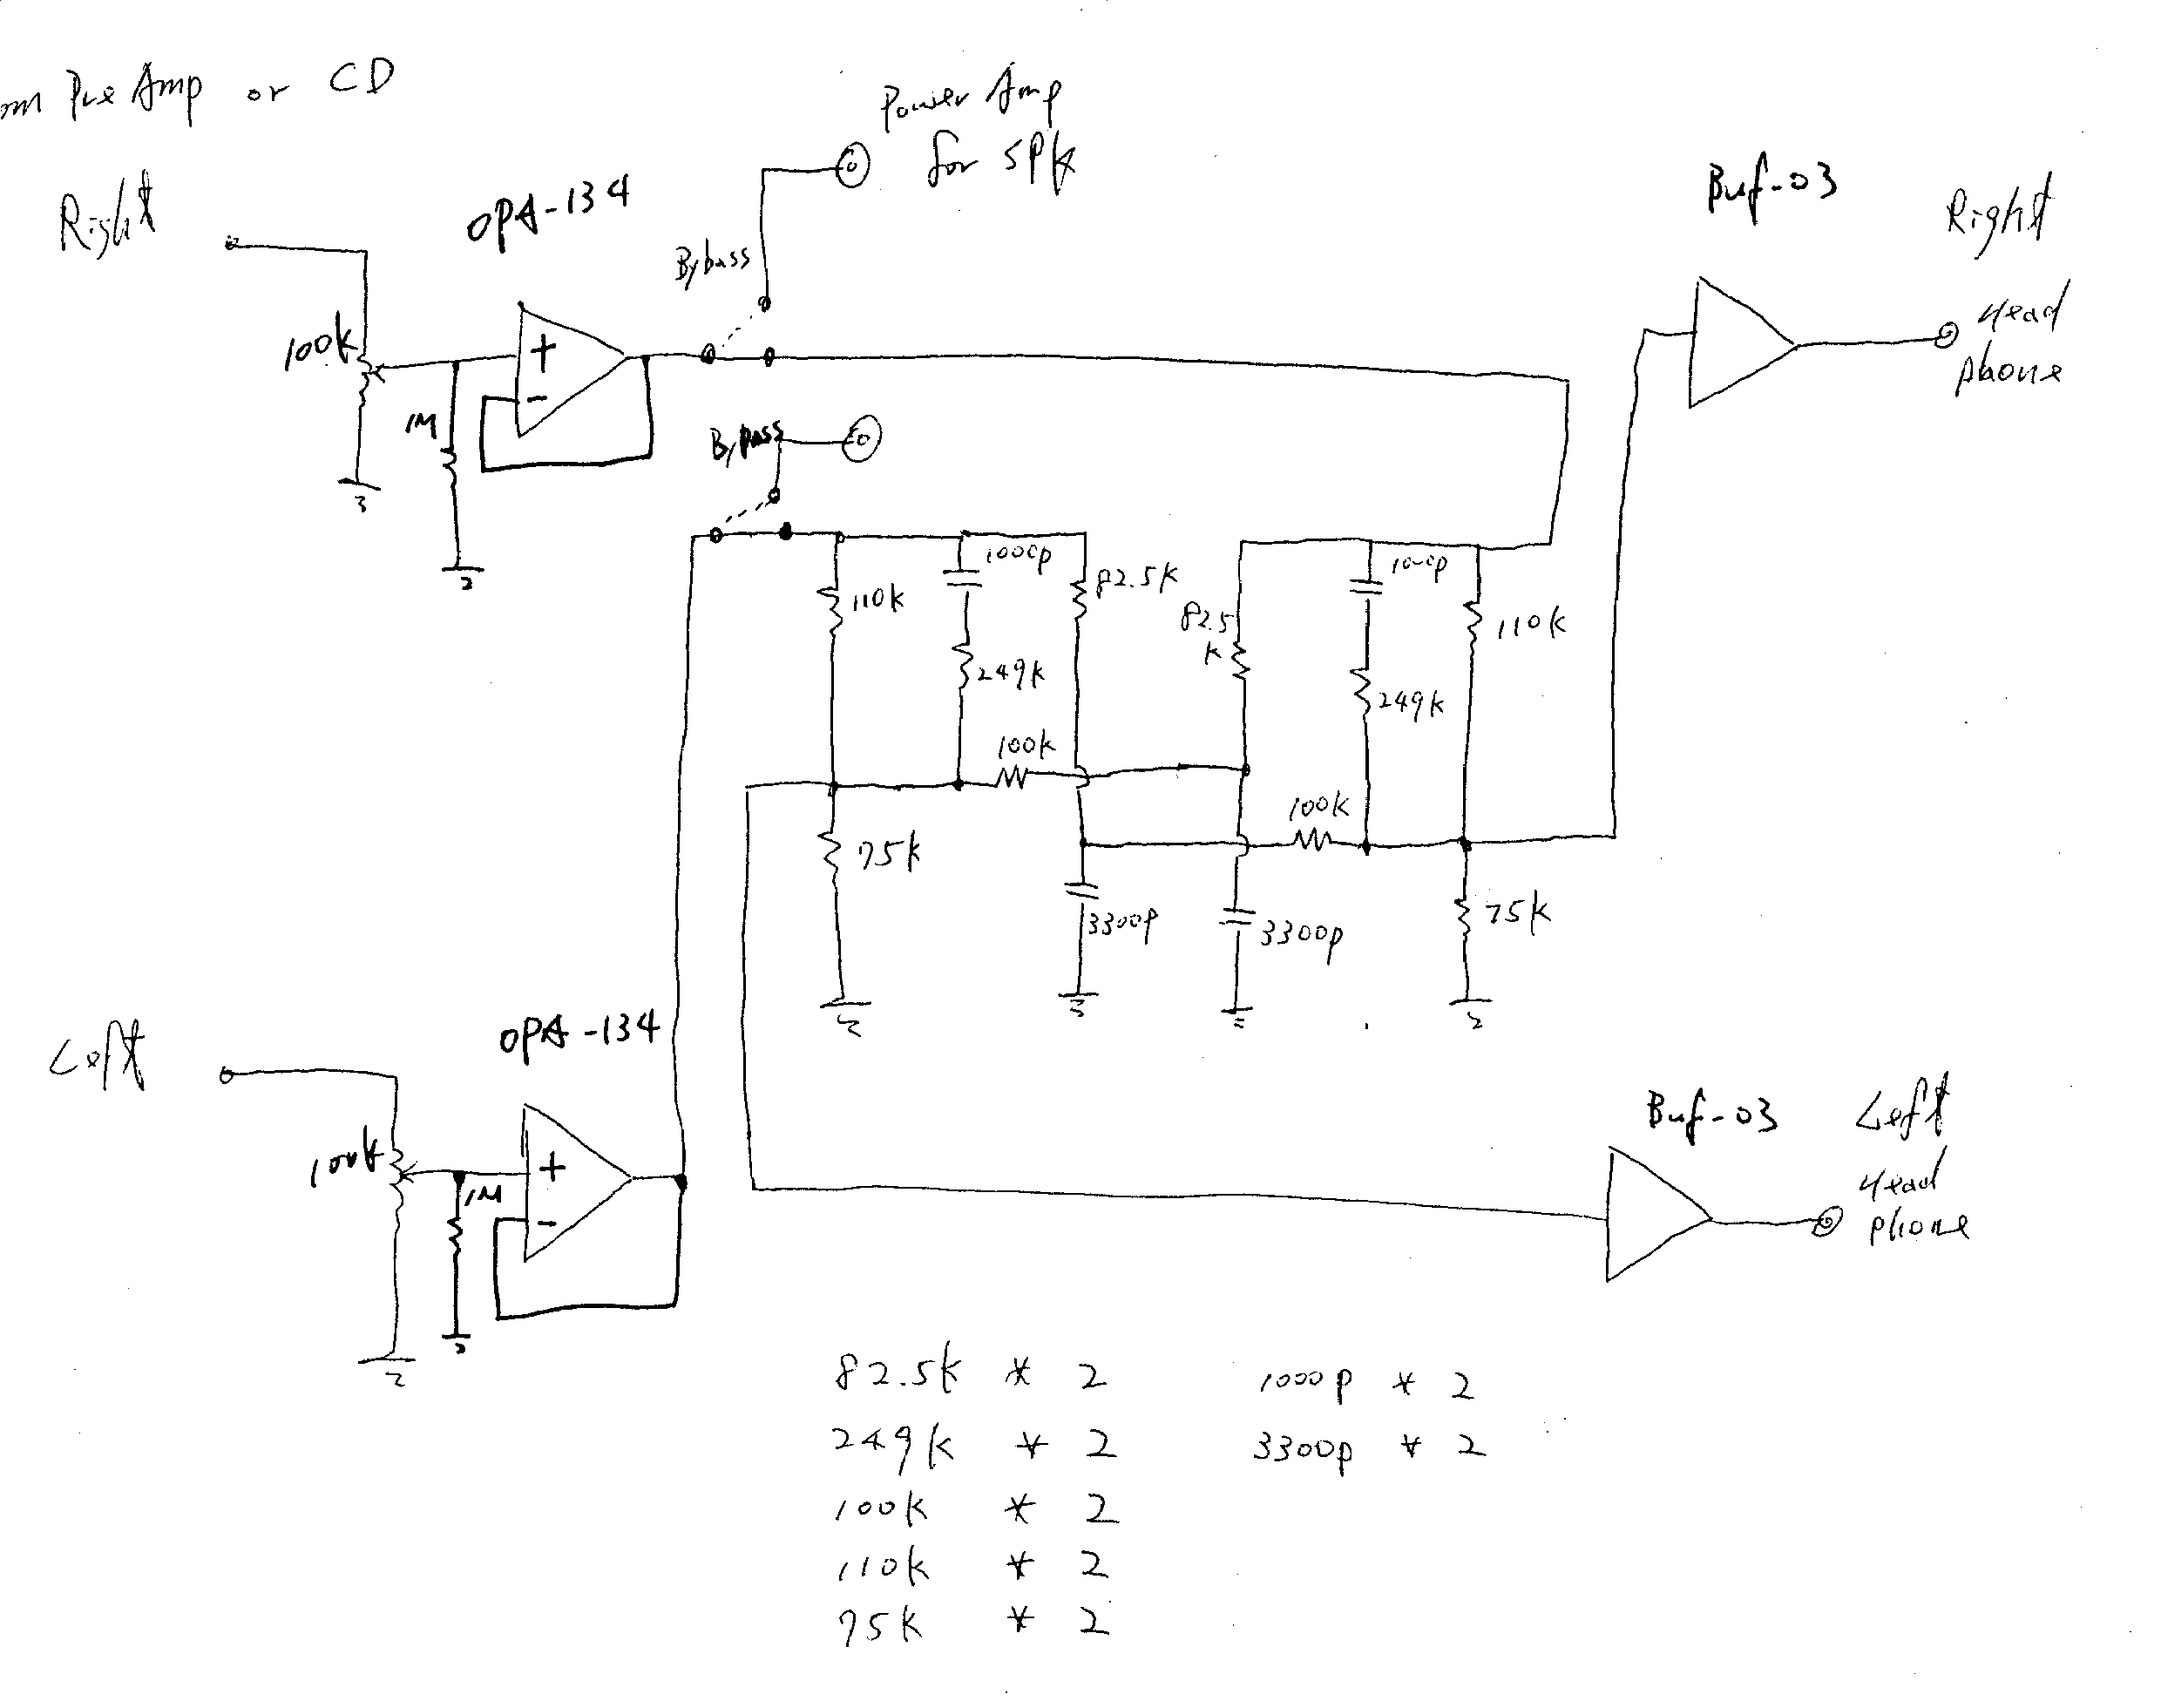 om Pre Amp or CD
Power Amp
for SPK
Right
OPA-134
Bybass
Buf-03
Right
Head
phone
100k
+
-
1M
Bypass
1000p
82.5k
110k
249k
100k
75k
3300p
82.5
k
1000p
110k
249k
100k
75k
3300p
Left
OPA-134
100k
1M
+
-
Buf-03
Left
Head
phone
82.5k * 2
249k * 2
100k * 2
110k * 2
75k * 2
1000p * 2
3300p * 2